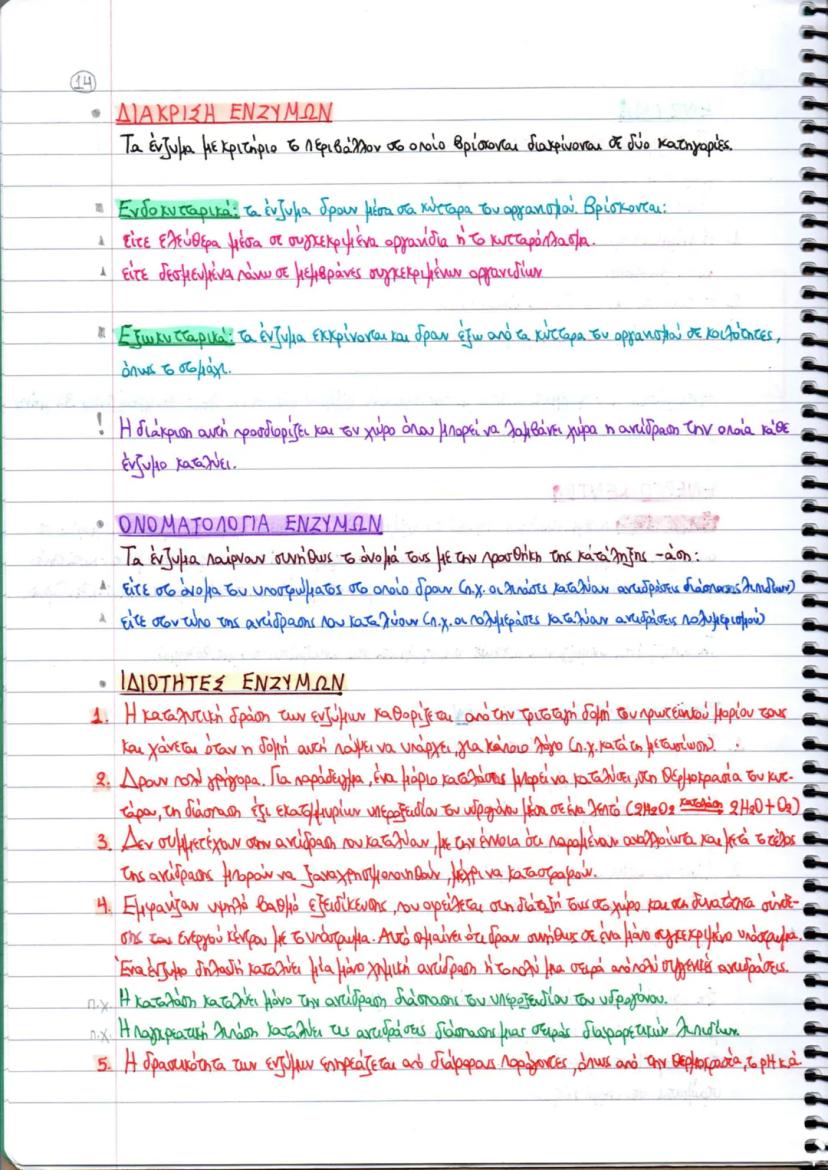 14
• ΔΙΑΚΡΙΣΗ ΕΝΖΥΜΩΝ
Τα ένζυμα με κριτήριο το περιβάλλον στο οποίο βρίσκονται διακρίνονται σε δύο κατηγορίες.
Ενδοκυτταρικά: τα ένζυμα δρουν μέσα στα κύτταρα του οργανισμού. Βρίσκονται:
είτε ελεύθερα μέσα σε συγκεκριμένα οργανίδια ή το κυτταρόπλασμα.
είτε δεσμευμένα πάνω σε μεμβράνες συγκεκριμένων οργανιδίων
Εξωκυτταρικά: τα ένζυμα εκκρίνονται και δρουν έξω από τα κύτταρα του οργανισμού σε κοιλότητες,
όπως το στομάχι.
! Η διάκριση αυτή προσδιορίζει και τον χώρο όπου μπορεί να λαμβάνει χώρα η αντίδραση την οποία κάθε
ένζυμο καταλύει.
• ΟΝΟΜΑΤΟΛΟΓΙΑ ΕΝΖΥΜΩΝ
Τα ένζυμα παίρνουν συνήθως το όνομά τους με την προσθήκη της κατάληξης -άση:
είτε στο όνομα του υποστρώματος στο οποίο δρουν (π.χ. οι λιπάσες καταλύουν αντιδράσεις διάσπασης λιπιδίων)
είτε στον τύπο της αντίδρασης που καταλύουν (π.χ. οι πολυμεράσες καταλύουν αντιδράσεις πολυμερισμού)
• ΙΔΙΟΤΗΤΕΣ ΕΝΖΥΜΩΝ
1. Η καταλυτική δράση των ενζύμων καθορίζεται από την τριτοταγή δομή του πρωτεϊνικού μορίου τους
και χάνεται όταν η δομή αυτή πάψει να υπάρχει, για κάποιο λόγο (π.χ. κατά τη μετουσίωση).
2. Δρουν πολύ γρήγορα. Για παράδειγμα, ένα μόριο καταλάσης μπορεί να καταλύσει, στη θερμοκρασία του κυτ-
τάρου, τη διάσπαση έξι εκατομμυρίων υπεροξειδίου του υδρογόνου μέσα σε ένα λεπτό (2H2O2 καταλάση 2H2O + O2)
3. Δεν συμμετέχουν στην αντίδραση που καταλύουν, με την έννοια ότι παραμένουν αναλλοίωτα και μετά το τέλος
της αντίδρασης μπορούν να ξαναχρησιμοποιηθούν, μέχρι να καταστραφούν.
4. Εμφανίζουν υψηλό βαθμό εξειδίκευσης, που οφείλεται στη διάταξή τους στο χώρο και στη δυνατότητα σύνδε-
σης του ενεργού κέντρου με το υπόστρωμα. Αυτό σημαίνει ότι δρουν συνήθως σε ένα μόνο συγκεκριμένο υπόστρωμα.
Ένα ένζυμο δηλαδή καταλύει μία μόνο χημική αντίδραση ή το πολύ μια σειρά από πολύ συγγενείς αντιδράσεις.
π.χ. Η καταλάση καταλύει μόνο την αντίδραση διάσπασης του υπεροξειδίου του υδρογόνου.
π.χ. Η παγκρεατική λιπάση καταλύει τις αντιδράσεις διάσπασης μιας σειράς διαφορετικών λιπιδίων.
5. Η δραστικότητα των ενζύμων επηρεάζεται από διάφορους παράγοντες, όπως από την θερμοκρασία, το pH κ.ά.